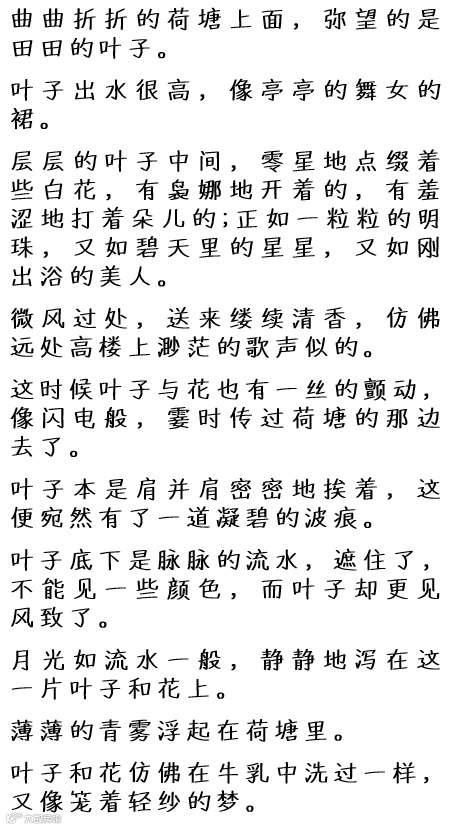 曲曲折折的荷塘上面，弥望的是
田田的叶子。
叶子出水很高，像亭亭的舞女的
裙。
层层的叶子中间，零星地点缀着
些白花，有袅娜地开着的，有羞
涩地打着朵儿的;正如一粒粒的明
珠，又如碧天里的星星，又如刚
出浴的美人。
微风过处，送来缕续清香，仿佛
远处高楼上渺茫的歌声似的。
这时候叶子与花也有一丝的颤动，
像闪电般，霎时传过荷塘的那边
去了。
叶子本是肩并肩密密地挨着，这
便宛然有了一道凝碧的波痕。
叶子底下是脉脉的流水，遮住了，
不能见一些颜色，而叶子却更见
风致了。
月光如流水一般，静静地泻在这
一片叶子和花上。
薄薄的青雾浮起在荷塘里。
叶子和花仿佛在牛乳中洗过一样，
又像笼着轻纱的梦。